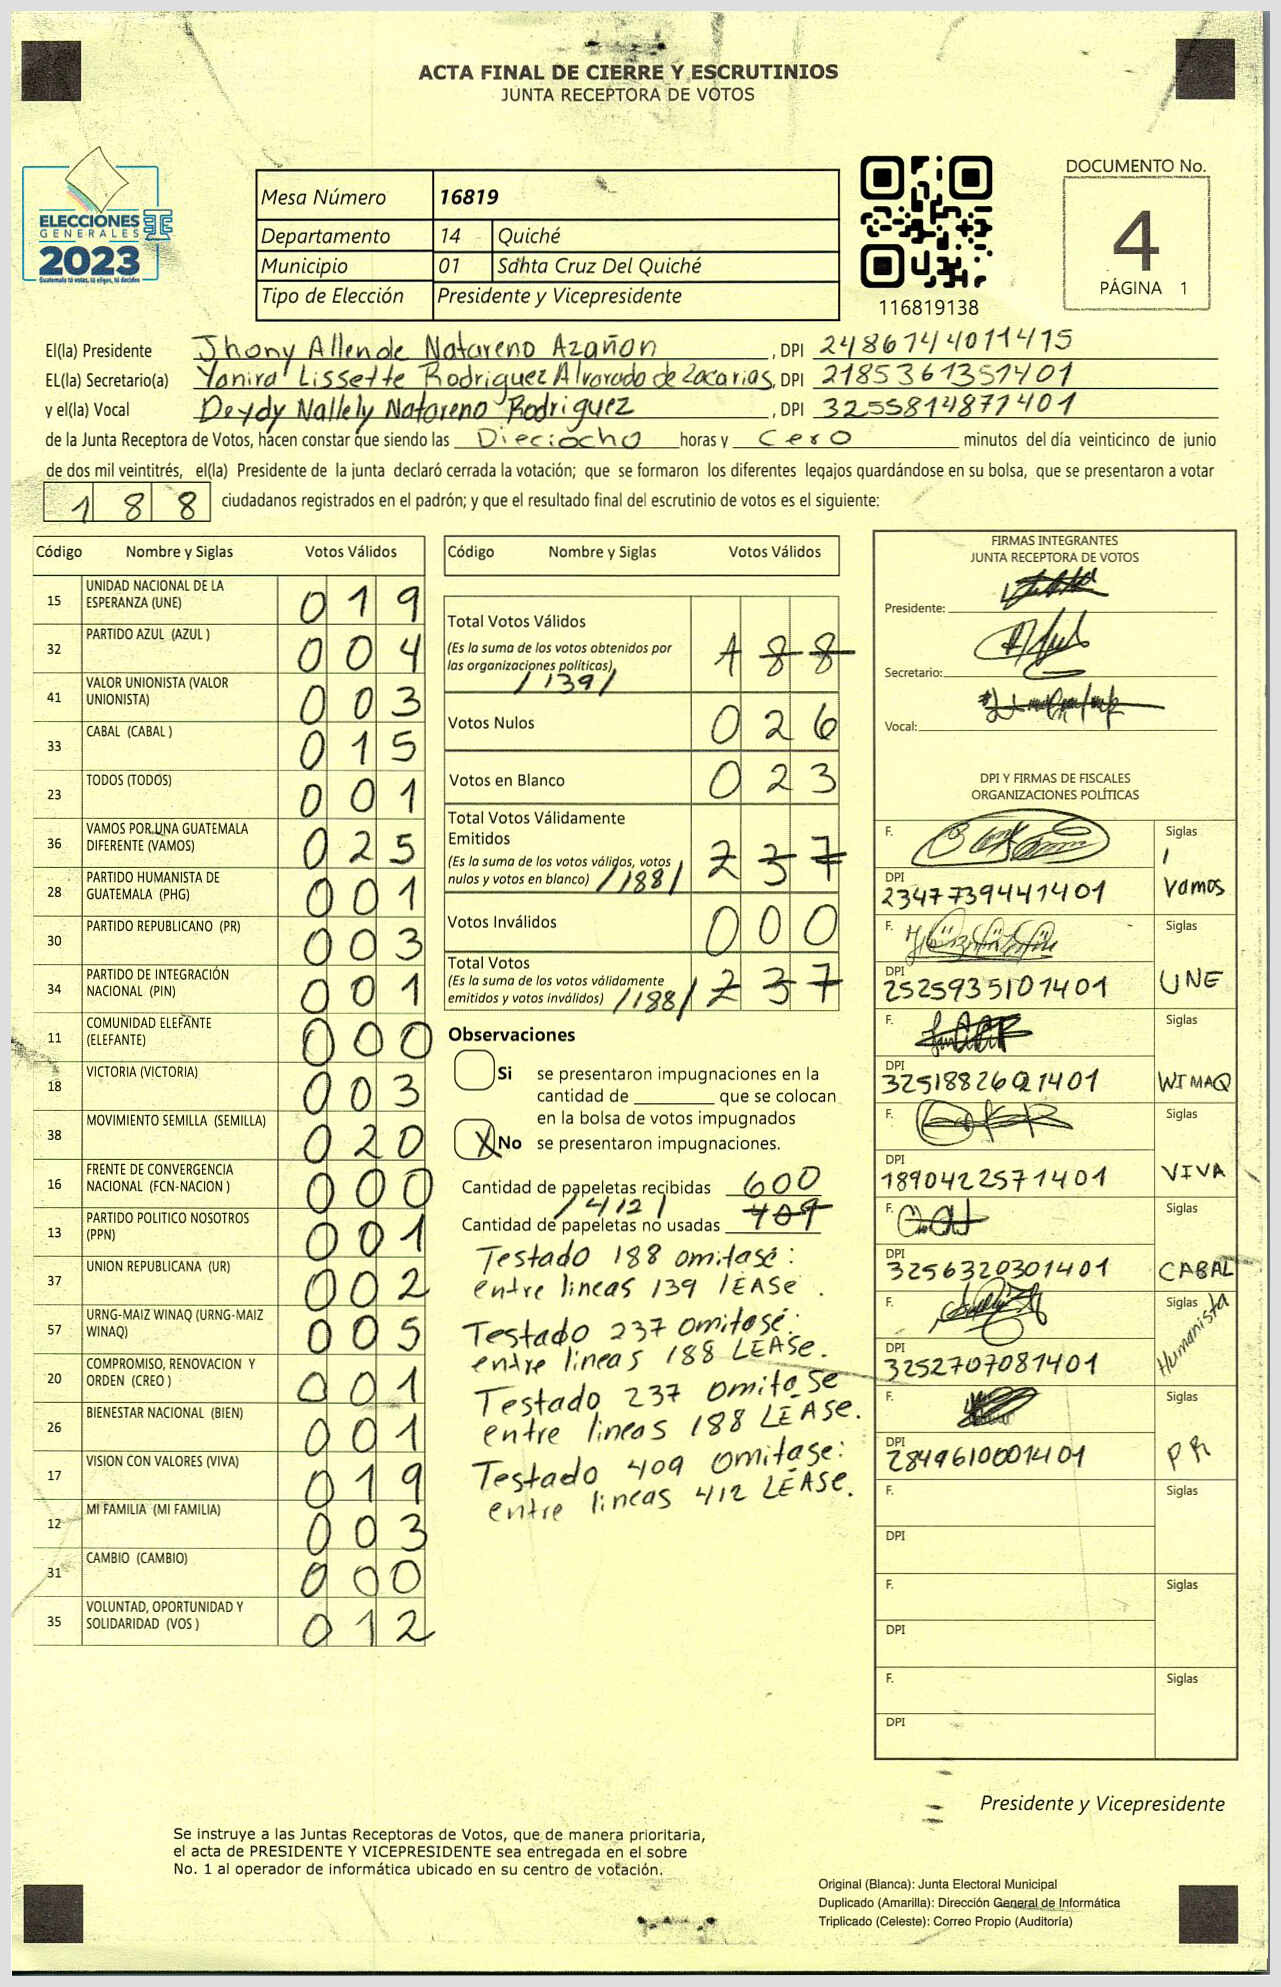 ACTA FINAL DE CIERRE Y ESCRUTINIOS
JUNTA RECEPTORA DE VOTOS
ELECCIONES
GENERALES
2023
Guatemala tú votas, tú eliges, tú decides
Mesa Número 16819
Departamento 14 Quiché
Municipio 01 Santa Cruz Del Quiché
Tipo de Elección Presidente y Vicepresidente
116819138
DOCUMENTO No.
4
PÁGINA 1
El(la) Presidente Jhony Allende Natareno Azañon, DPI 2486744011415
EL(la) Secretario(a) Yanira Lissette Rodriguez Alvarado de Zacarias, DPI 2185361351401
y el(la) Vocal Deydy Nallely Natareno Rodriguez, DPI 3255814871401
de la Junta Receptora de Votos, hacen constar que siendo las Dieciocho horas y Cero minutos del día veinticinco de junio
de dos mil veintitrés, el(la) Presidente de la junta declaró cerrada la votación; que se formaron los diferentes legajos quardándose en su bolsa, que se presentaron a votar
188 ciudadanos registrados en el padrón; y que el resultado final del escrutinio de votos es el siguiente:
Código Nombre y Siglas Votos Válidos
15 UNIDAD NACIONAL DE LA ESPERANZA (UNE) 019
32 PARTIDO AZUL (AZUL ) 004
41 VALOR UNIONISTA (VALOR UNIONISTA) 003
33 CABAL (CABAL ) 015
23 TODOS (TODOS) 001
36 VAMOS POR UNA GUATEMALA DIFERENTE (VAMOS) 025
28 PARTIDO HUMANISTA DE GUATEMALA (PHG) 001
30 PARTIDO REPUBLICANO (PR) 003
34 PARTIDO DE INTEGRACIÓN NACIONAL (PIN) 001
11 COMUNIDAD ELEFANTE (ELEFANTE) 000
18 VICTORIA (VICTORIA) 003
38 MOVIMIENTO SEMILLA (SEMILLA) 020
16 FRENTE DE CONVERGENCIA NACIONAL (FCN-NACION ) 000
13 PARTIDO POLITICO NOSOTROS (PPN) 001
37 UNION REPUBLICANA (UR) 002
57 URNG-MAIZ WINAQ (URNG-MAIZ WINAQ) 005
20 COMPROMISO, RENOVACION Y ORDEN (CREO ) 001
26 BIENESTAR NACIONAL (BIEN) 001
17 VISION CON VALORES (VIVA) 019
12 MI FAMILIA (MI FAMILIA) 003
31 CAMBIO (CAMBIO) 000
35 VOLUNTAD, OPORTUNIDAD Y SOLIDARIDAD (VOS ) 012
Código Nombre y Siglas Votos Válidos
Total Votos Válidos 188
(Es la suma de los votos obtenidos por
las organizaciones políticas)
/139/
Votos Nulos 026
Votos en Blanco 023
Total Votos Válidamente
Emitidos 237
(Es la suma de los votos válidos, votos
nulos y votos en blanco) /188/
Votos Inválidos 000
Total Votos
(Es la suma de los votos válidamente
emitidos y votos inválidos) /188/ 237
Observaciones
Si se presentaron impugnaciones en la
cantidad de ________ que se colocan
en la bolsa de votos impugnados
X No se presentaron impugnaciones.
Cantidad de papeletas recibidas 600
/412/
Cantidad de papeletas no usadas 409
Testado 188 omitase:
entre lineas 139 LEASE.
Testado 237 omitase:
entre lineas 188 LEASE.
Testado 237 omitase
entre lineas 188 LEASE.
Testado 409 omitase:
entre lineas 412 LEASE.
FIRMAS INTEGRANTES
JUNTA RECEPTORA DE VOTOS
Presidente:
Secretario:
Vocal:
DPI Y FIRMAS DE FISCALES
ORGANIZACIONES POLÍTICAS
F. Siglas
DPI 2347739441401 Vamos
F. Siglas
DPI 2525935101401 UNE
F. Siglas
DPI 3251882601401 WIMAQ
F. Siglas
DPI 1890422571401 VIVA
F. Siglas
DPI 3256320301401 CABAL
F. Siglas
DPI 3252707081401 Humanista
F. Siglas
DPI 2849610001401 PR
F. Siglas
DPI
F. Siglas
DPI
F. Siglas
DPI
Presidente y Vicepresidente
Se instruye a las Juntas Receptoras de Votos, que de manera prioritaria,
el acta de PRESIDENTE Y VICEPRESIDENTE sea entregada en el sobre
No. 1 al operador de informática ubicado en su centro de votación.
Original (Blanca): Junta Electoral Municipal
Duplicado (Amarilla): Dirección General de Informática
Triplicado (Celeste): Correo Propio (Auditoría)